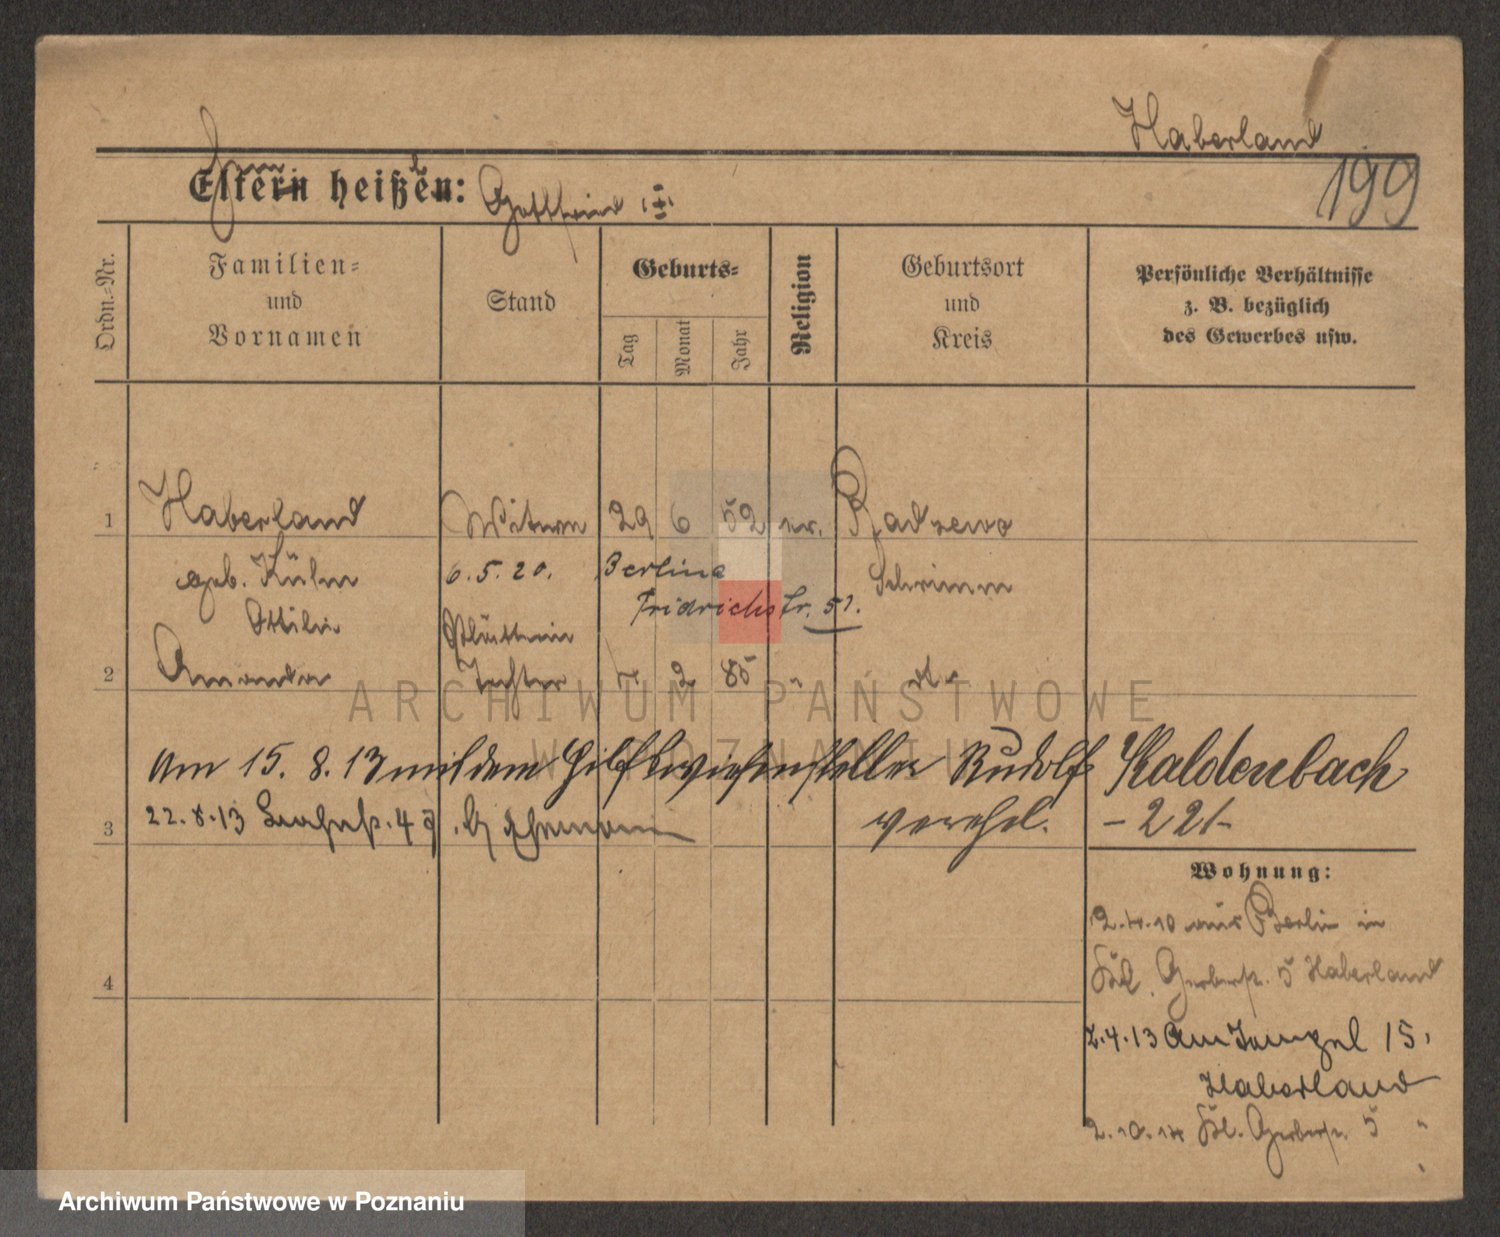 Haberland
199
Eltern heißen: Gottfried
Ordn.-Nr.
Familien=
und
Vornamen
Stand
Geburts=
Tag
Monat
Jahr
Religion
Geburtsort
und
Kreis
Persönliche Verhältnisse
z. B. bezüglich
des Gewerbes usw.
1 Haberland Witwe 29 6 52 ev. Radzewo
geb. Kühn 6.5.20. Berlin Schrimm
Ottilie Fridrichstr. 51.
Plätterin
2 Amanda Tochter 7 2 85 " dto
ARCHIWUM PAŃSTWOWE
W POZNANIU
Am 15. 8. 13 mit dem Rudolf Kaldenbach
3 22.8.13 49 b. Ehemann verehel. - 221 -
Wohnung:
2.4.10 aus Berlin in
4 Kl. Gerberstr. 5 Haberland
2.4.13 15.
Haberland
2.10.14 Kl. Gerberstr. 5 "
Archiwum Państwowe w Poznaniu